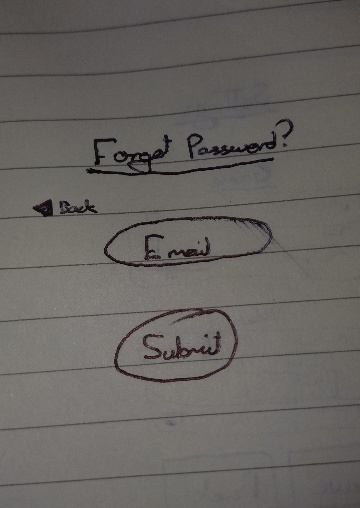 Forget Password?
Back
Email
Submit